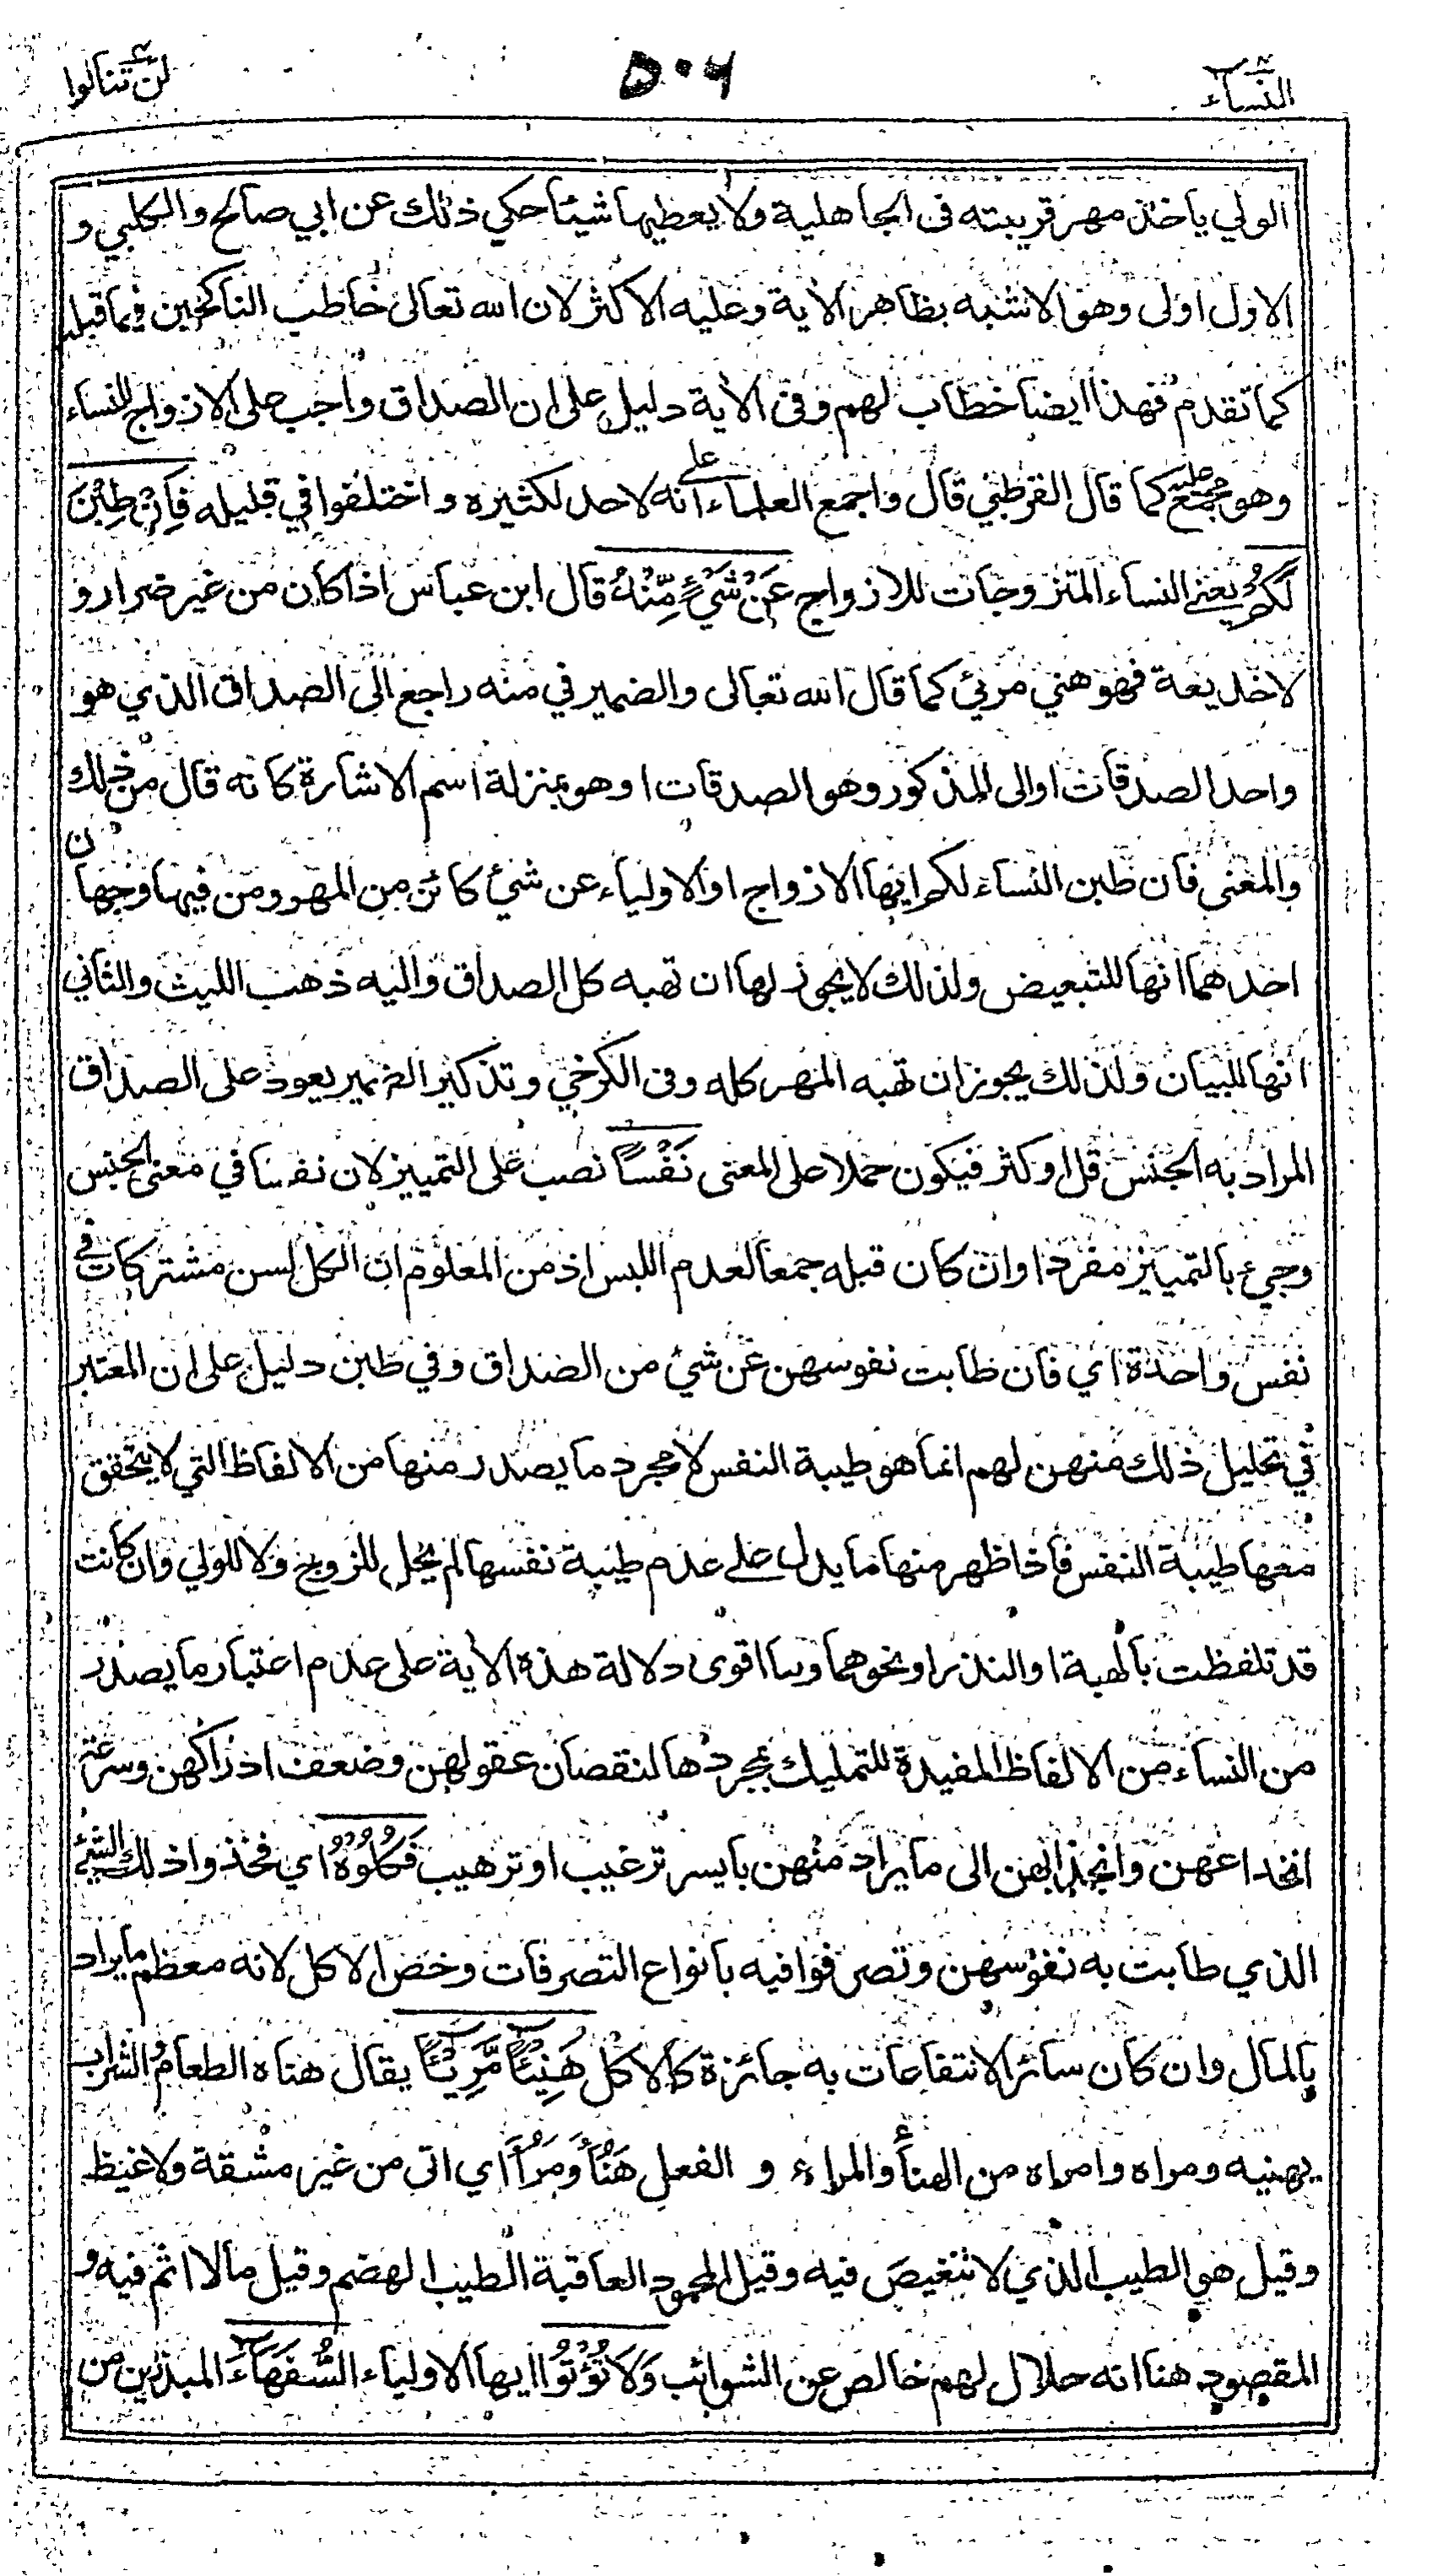 النساء
٥٠٦
لن تنالوا
الولي ياخذ مهر قريبته في الجاهلية ولا يعطيها شيئا حكي ذلك عن ابي صالح والكلبي و
الاول اولى وهو الاشبه بظاهر الاية وعليه الاكثر لان الله تعالى خاطب الناكحين فيما قبله
كما تقدم فهذا ايضا خطاب لهم وفي الاية دليل على ان الصداق واجب على الازواج للنساء
وهو مجمع عليه كما قال القرطبي قال واجمع العلماء على انه لاحد لكثيره واختلفوا في قليله فَاِنْ طِبْنَ
لَكُمْ يعني النساء المتزوجات للازواج عَنْ شَيْءٍ مِّنْهُ قال ابن عباس اذا كان من غير ضرار و
لا خديعة فهو هني مريئ كما قال الله تعالى والضمير في منه راجع الى الصداق الذي هو
واحد الصدقات او الى المذكور وهو الصدقات او هو بمنزلة اسم الاشارة كانه قال من ذلك
والمعنى فان طبن النساء لكم ايها الازواج او الاولياء عن شئ كائن من المهر ومن فيها وجهان
احدهما انها للتبعيض ولذلك لا يجوز لها ان تهبه كل الصداق واليه ذهب الليث والثاني
انها للبيان ولذلك يجوز ان تهبه المهر كله وفي الكرخي وتذكير الضمير يعود على الصداق
المراد به الجنس قل او كثر فيكون حملا على المعنى نَفْسًا نصب على التمييز لان نفسا في معنى الجنس
وجيء بالتمييز مفردا وان كان قبله جمعا لعدم اللبس اذ من المعلوم ان الكل لسن مشتركات في
نفس واحدة اي فان طابت نفوسهن عن شئ من الصداق وفي طبن دليل على ان المعتبر
في تحليل ذلك منهن لهم انما هو طيبة النفس لا مجرد ما يصدر منها من الالفاظ التي لا يتحقق
معها طيبة النفس فاذا ظهر منها ما يدل على عدم طيبة نفسها لم يحل للزوج ولا للولي وان كانت
قد تلفظت بالهبة او النذر او نحوهما وما اقوى دلالة هذه الاية على عدم اعتبار ما يصدر
من النساء من الالفاظ المفيدة للتمليك بمجردها لنقصان عقولهن وضعف ادراكهن وسرعة
انخداعهن وانجذابهن الى ما يراد منهن بايسر ترغيب او ترهيب فَكُلُوْهُ اي فخذوا ذلك الشئ
الذي طابت به نفوسهن وتصرفوا فيه بانواع التصرفات وخص الاكل لانه معظم ما يراد
بالمال وان كان سائر الانتفاعات به جائزة كالاكل هَنِيْئًا مَّرِيْئًا يقال هناه الطعام والشراب
يهنيه ومراه وامراه من الهنأ والمراء و الفعل هَنُأَ ومَرُأَ اي اتى من غير مشقة ولا غيظ
وقيل هو الطيب الذي لا تنغيص فيه وقيل المحمود العاقبة الطيب الهضم وقيل ما لا اثم فيه و
المقصود هنا انه حلال لهم خالص عن الشوائب وَلَا تُؤْتُوا ايها الاولياء السُّفَهَاءَ المبذرين من